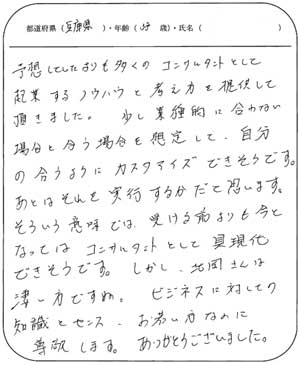 都道府県(兵庫県)・年齢(　歳)・氏名(　)
予想してたよりも多くのコンサルタントとして
起業するノウハウと考え方を提供して
頂きました。 少し業種的に合わない
場合と合う場合を想定して、自分
の合うようにカスタマイズできそうです。
あとはそれを実行するかだで思います。
そういう意味では、受ける前よりも今と
なってはコンサルタントとして具現化
できそうです。しかし、北岡さんは
凄い方ですね。 ビジネスに対しての
知識とセンス、お若い方なのに
尊敬します。ありがとうございました。